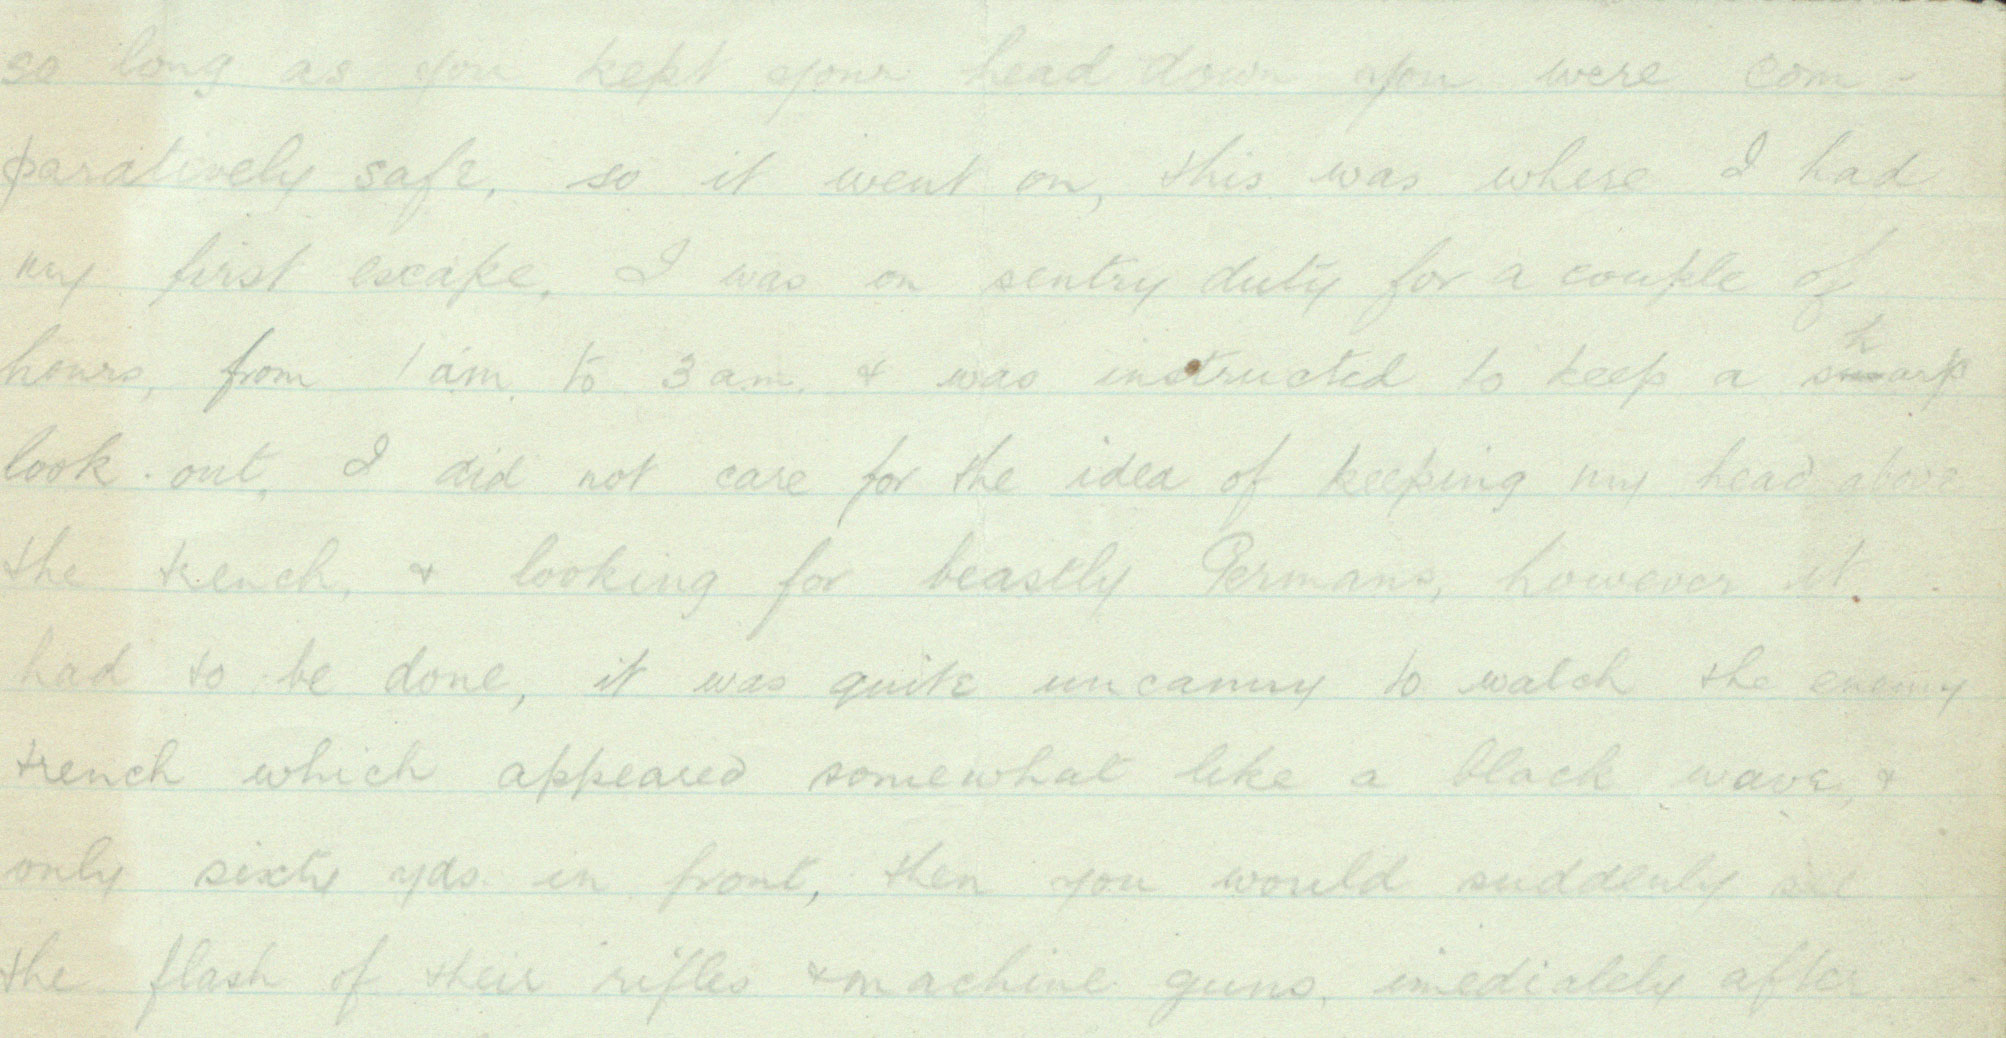 so long as you kept your head down you were com-
paratively safe, so it went on, this was where I had
my first escape, I was on sentry duty for a couple of
hours, from 1 am to 3 am, & was instructed to keep a sharp
look-out, I did not care for the idea of keeping my head above
the trench, & looking for beastly Germans, however it
had to be done, it was quite uncanny to watch the enemy
trench which appeared somewhat like a black wave, &
only sixty yds in front, then you would suddenly see
the flash of their rifles & machine guns, imediately after